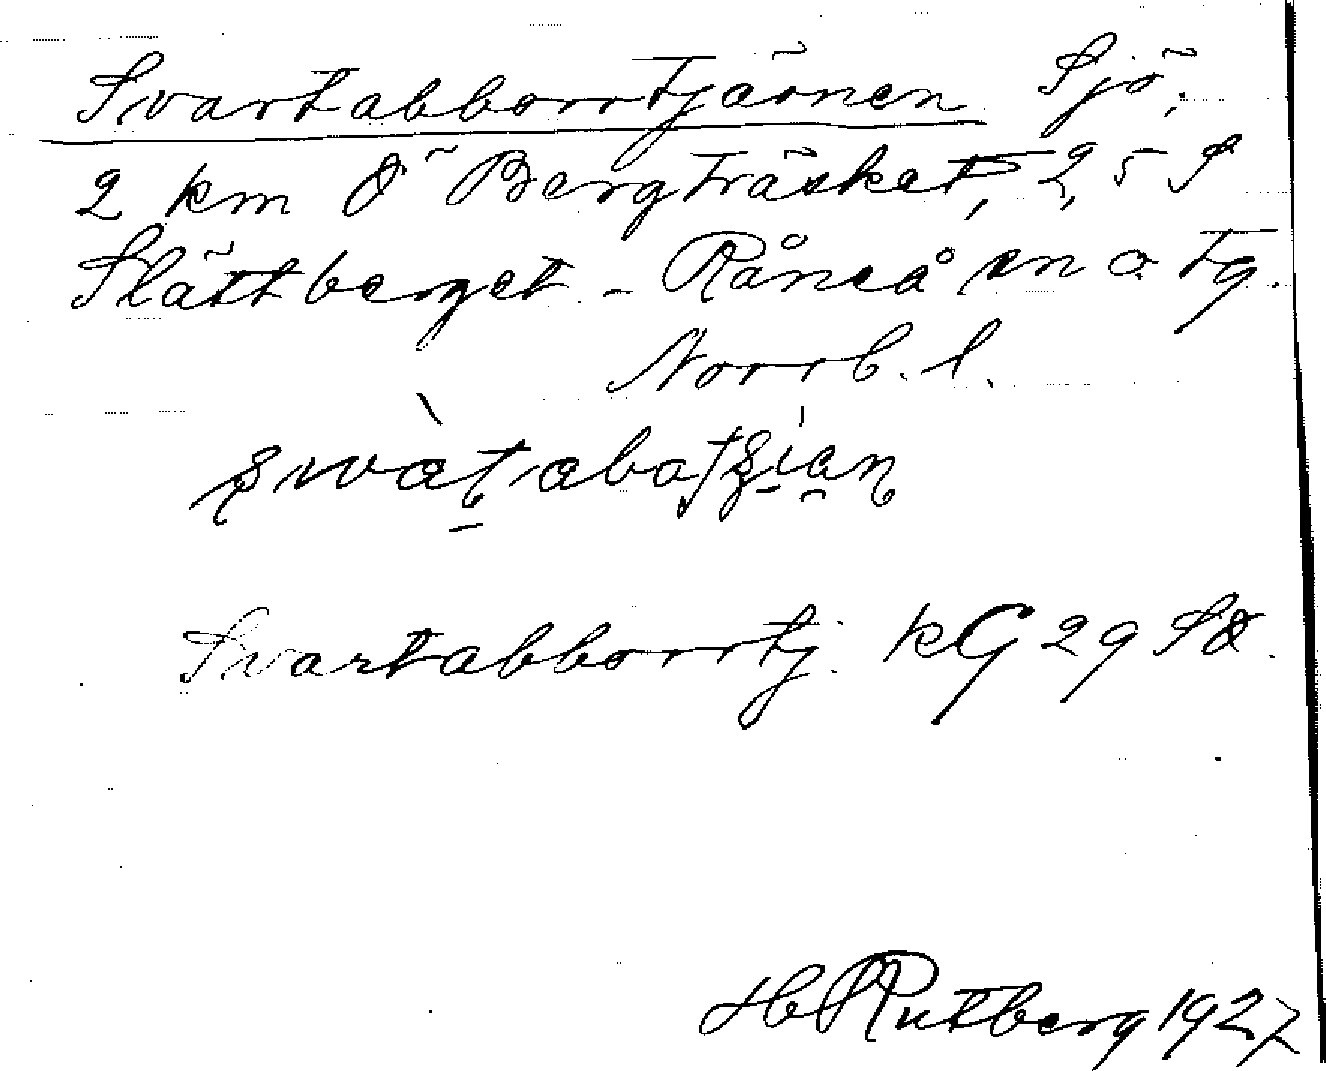 Svartabborrtjärnen Sjö;
2 km Ö Bergträsket, 2,5 S
Slättberget - Råneå sn o tg.
Norrb. l.
Svartabborrtj. kG 29 SÖ.
H Rutberg 1927